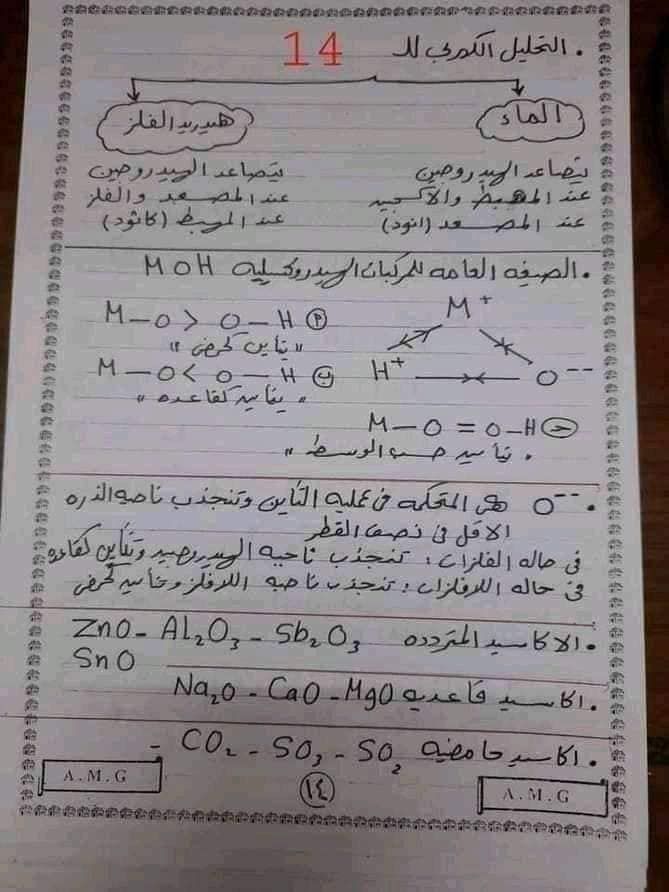 14
. التحليل الكهربي لـ
الماء
هيدريد الفلز
يتصاعد الهيدروجين
عند المهبط والأكسجين
عند المصعد (انود)
يتصاعد الهيدروجين
عند المصعد والفلز
عند المهبط (كاثود)
. الصيغه العامه للمركبات الهيدروكسيليه MOH
M+
H+
O--
M-O > O-H (P)
"يتأين كحمض"
M-O < O-H (ب)
"يتأين كقاعده"
M-O = O-H (ج)
"يتأين حسب الوسط"
. O-- هى المتحكمه فى عمليه التأين وتنجذب ناحيه الذره
الاقل فى نصف القطر
فى حاله الفلزات: تنجذب ناحيه الهيدروجين وتتأين كقاعده
فى حاله اللافلزات: تنجذب ناحيه اللافلز وتتأين كحمض
. الاكاسيد المتردده ZnO - Al2O3 - Sb2O3
SnO
. اكاسيد قاعديه Na2O - CaO - MgO
. اكاسيد حامضيه CO2 - SO3 - SO2 -
A.M.G
١٤
A.M.G